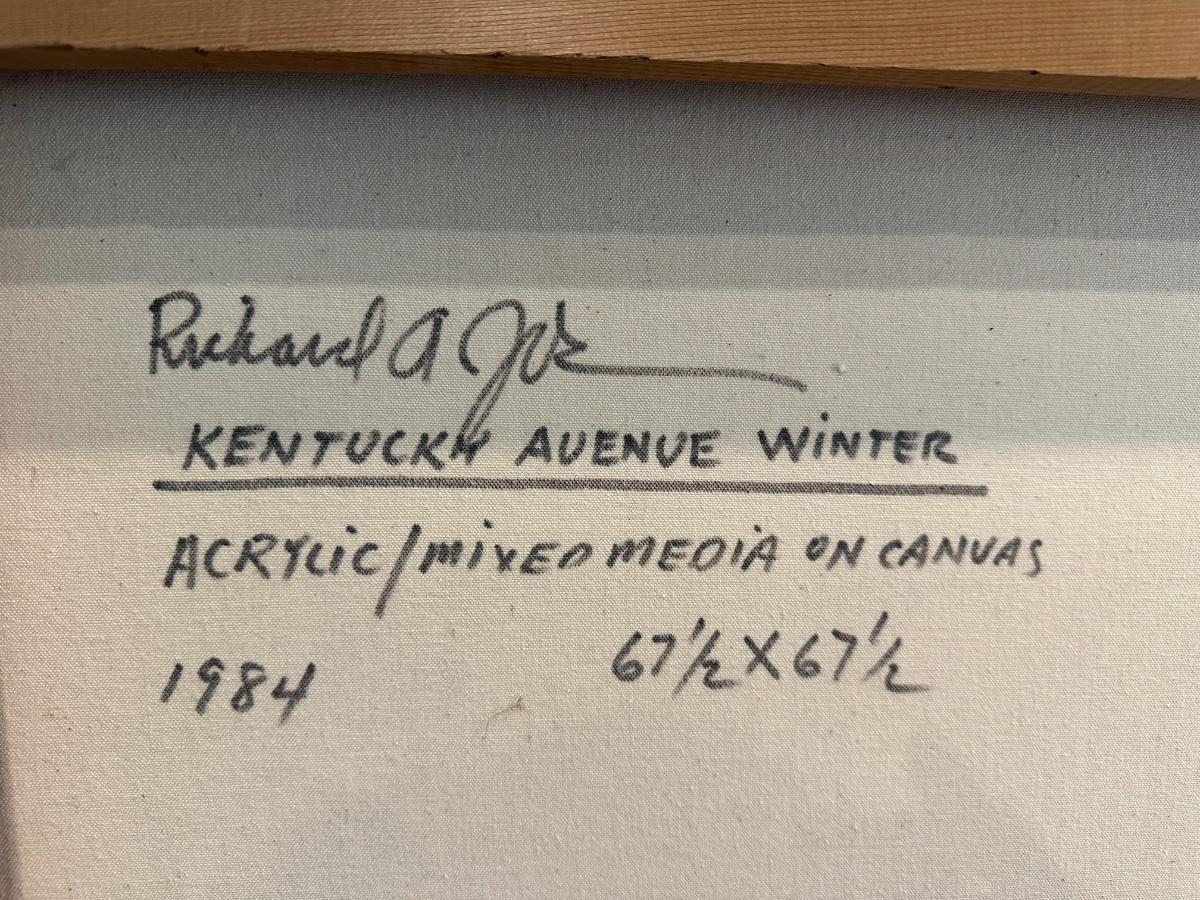 Richard A
KENTUCKY AVENUE WINTER
ACRYLIC/MIXED MEDIA ON CANVAS
1984 67 1/2 X 67 1/2